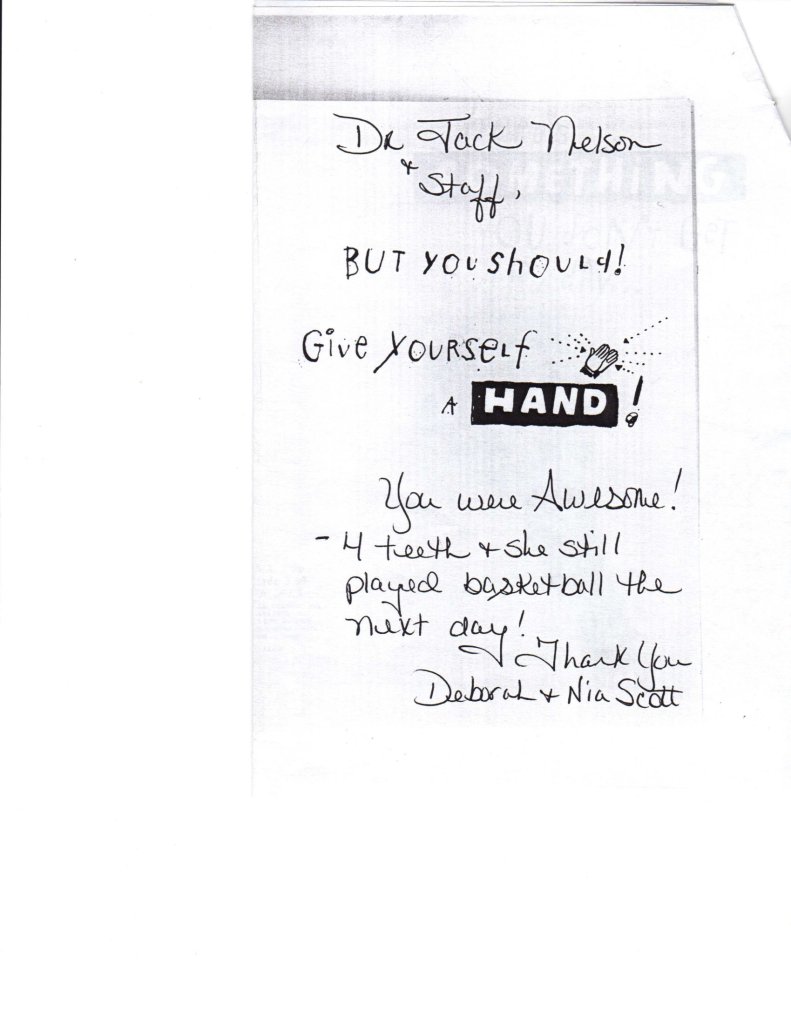 Dr Jack Nelson
& Staff,
BUT YOU ShOULd!
Give YOURSElf
A HAND!
You were Awesome!
- 4 teeth & she still
played basketball the
next day!
Thank You
Deborah & Nia Scott